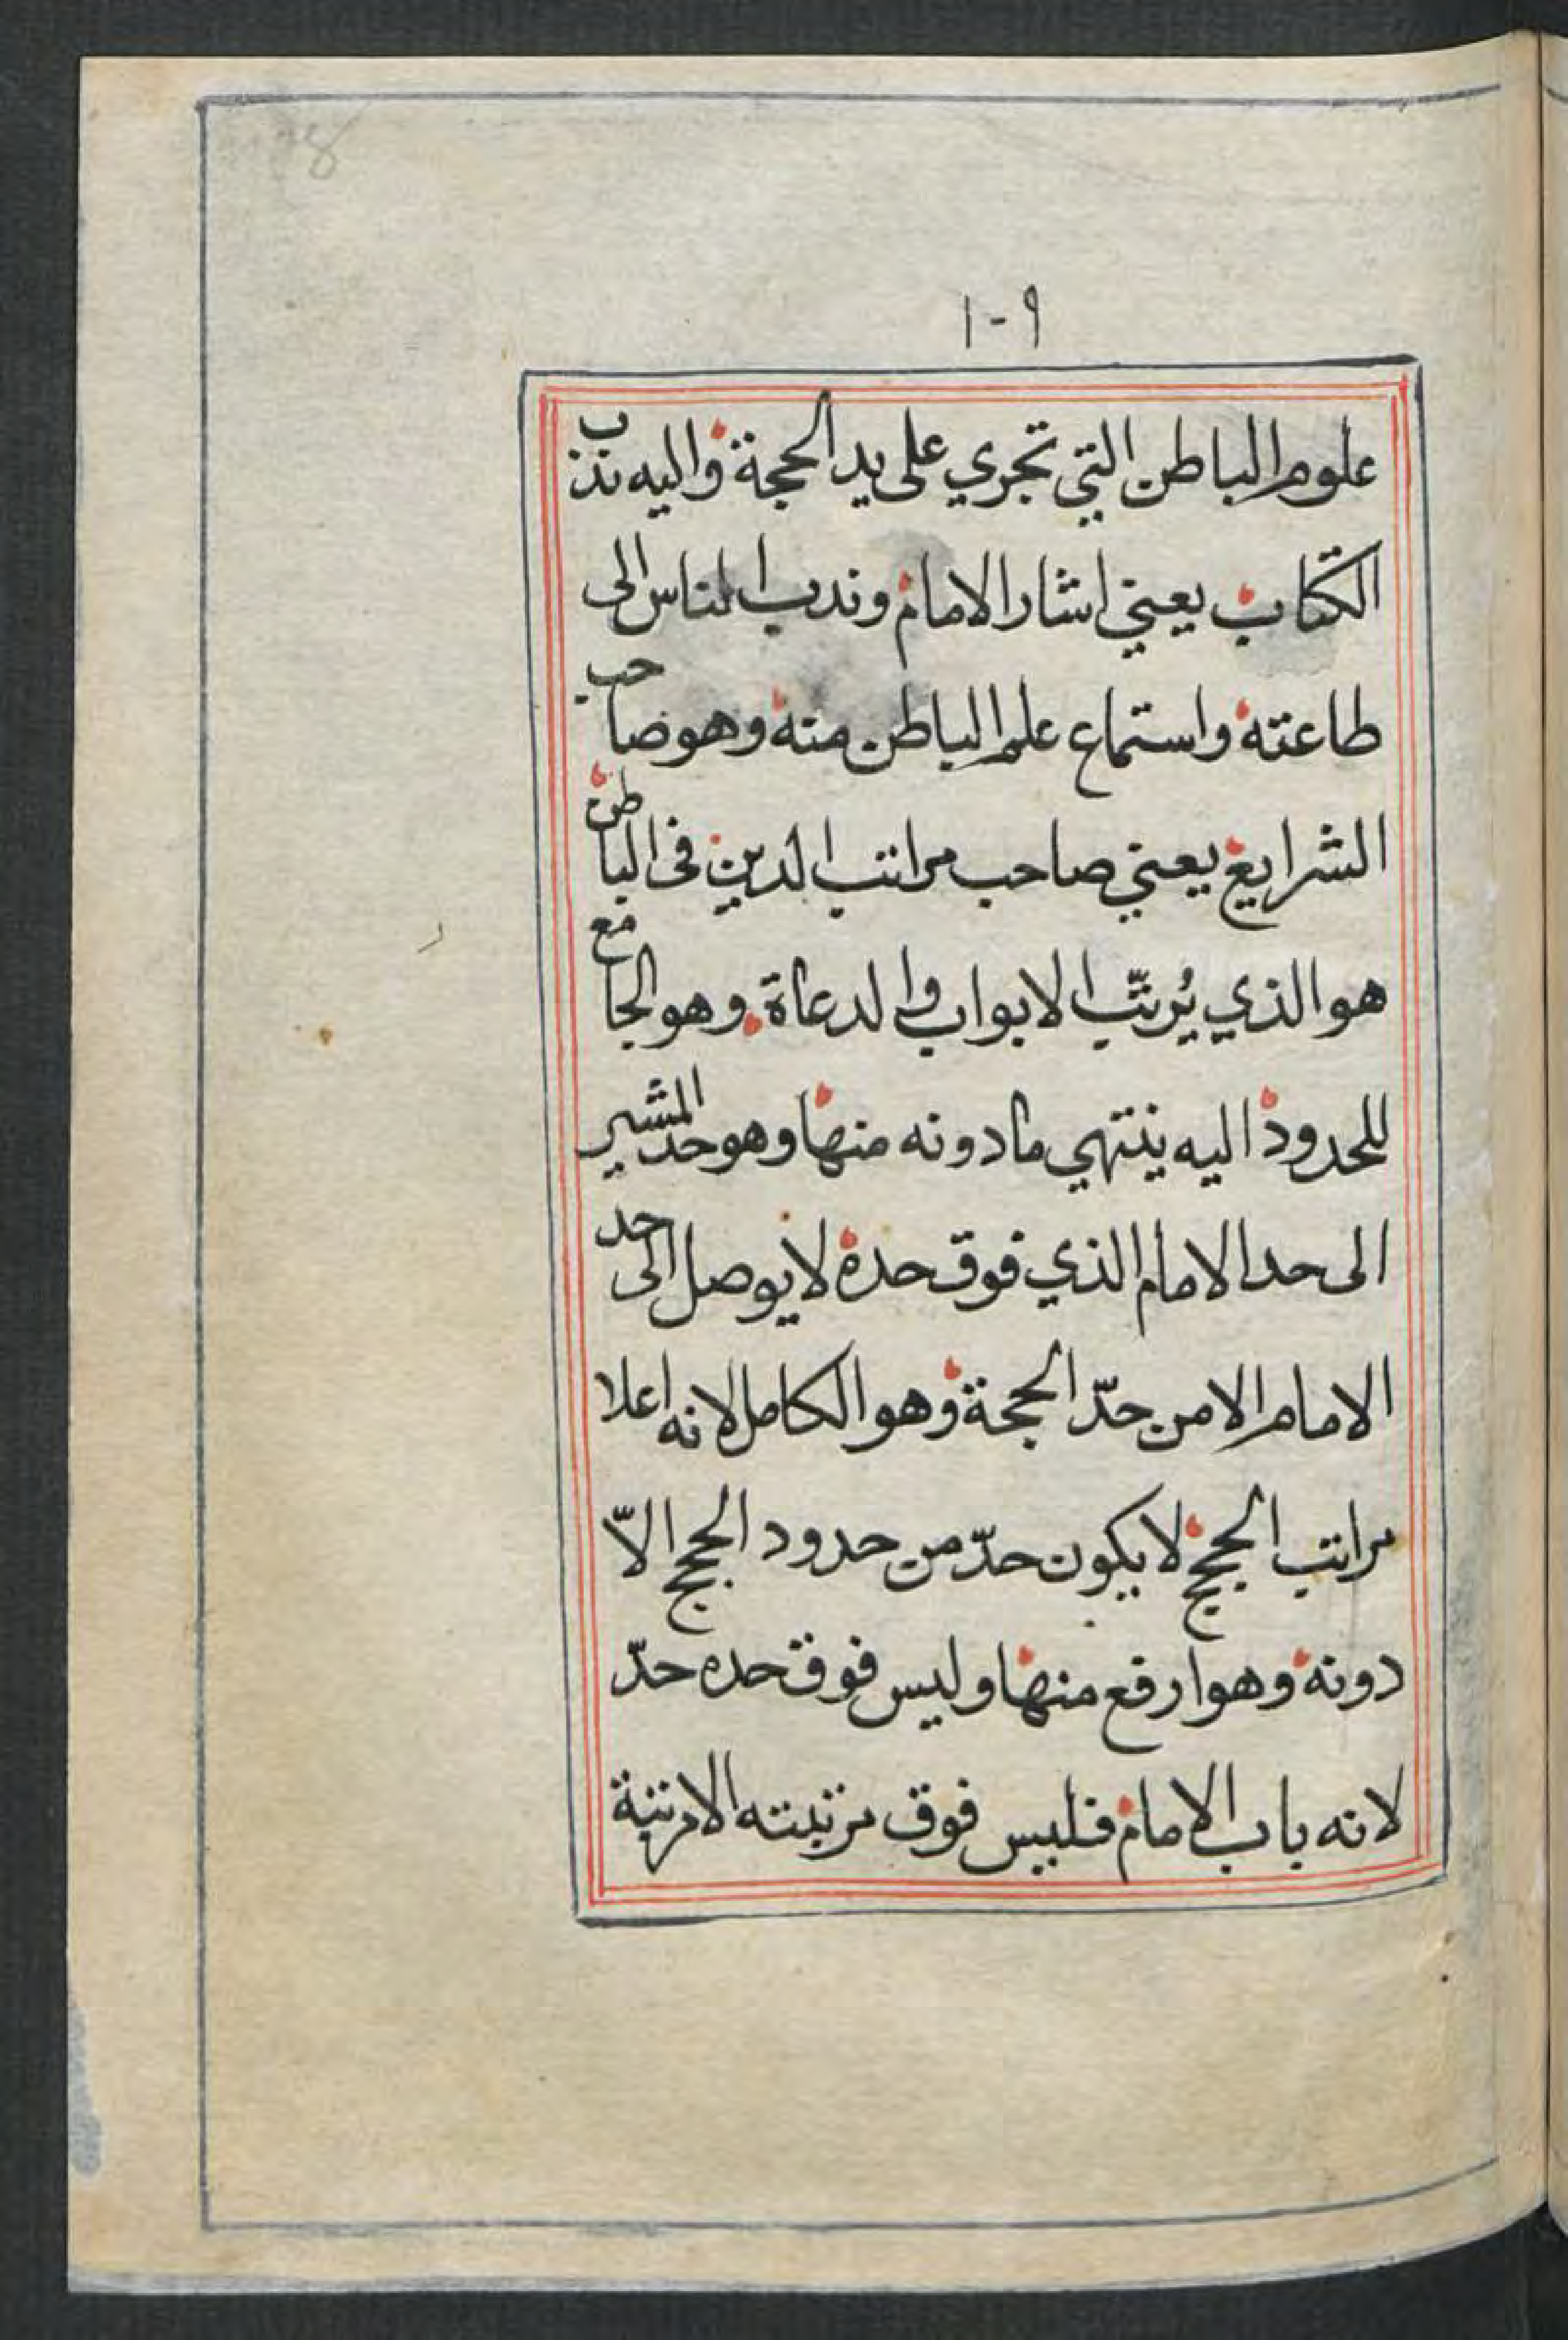 ١٠٩
علوم الباطن التي تجري على يد الحجة واليه ندب
الكتاب يعني اشار الامام وندب الناس الى
طاعته واستماع علم الباطن منه وهو صاحب
الشرايع يعني صاحب مراتب الدين في الباطن
هو الذي يُرتّب الابواب والدعاة وهو الجامع
للحدود اليه ينتهي مادونه منها وهو حد المشير
الى حد الامام الذي فوق حده لا يوصل الى حد
الامام الا من حدّ الحجة وهو الكامل لانه اعلا
مراتب الحجج لا يكون حدّ من حدود الحجج الاّ
دونه وهو ارفع منها وليس فوق حده حدّ
لانه باب الامام فليس فوق مرتبته الا مرتبة